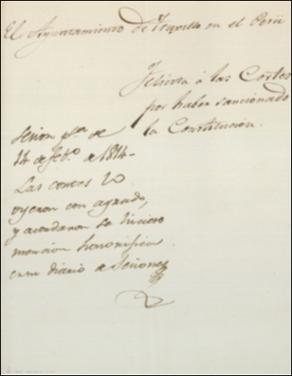 El Ayuntamiento de Truxillo en el Perú
Felicita á las Cortes
por haber sancionado
la Constitucion.
Sesion de
14 de feb.º de 1814.
Las cortes lo
oyeron con agrado,
y acordaron se hiciese
mencion honorifica
en su diario de Sesiones